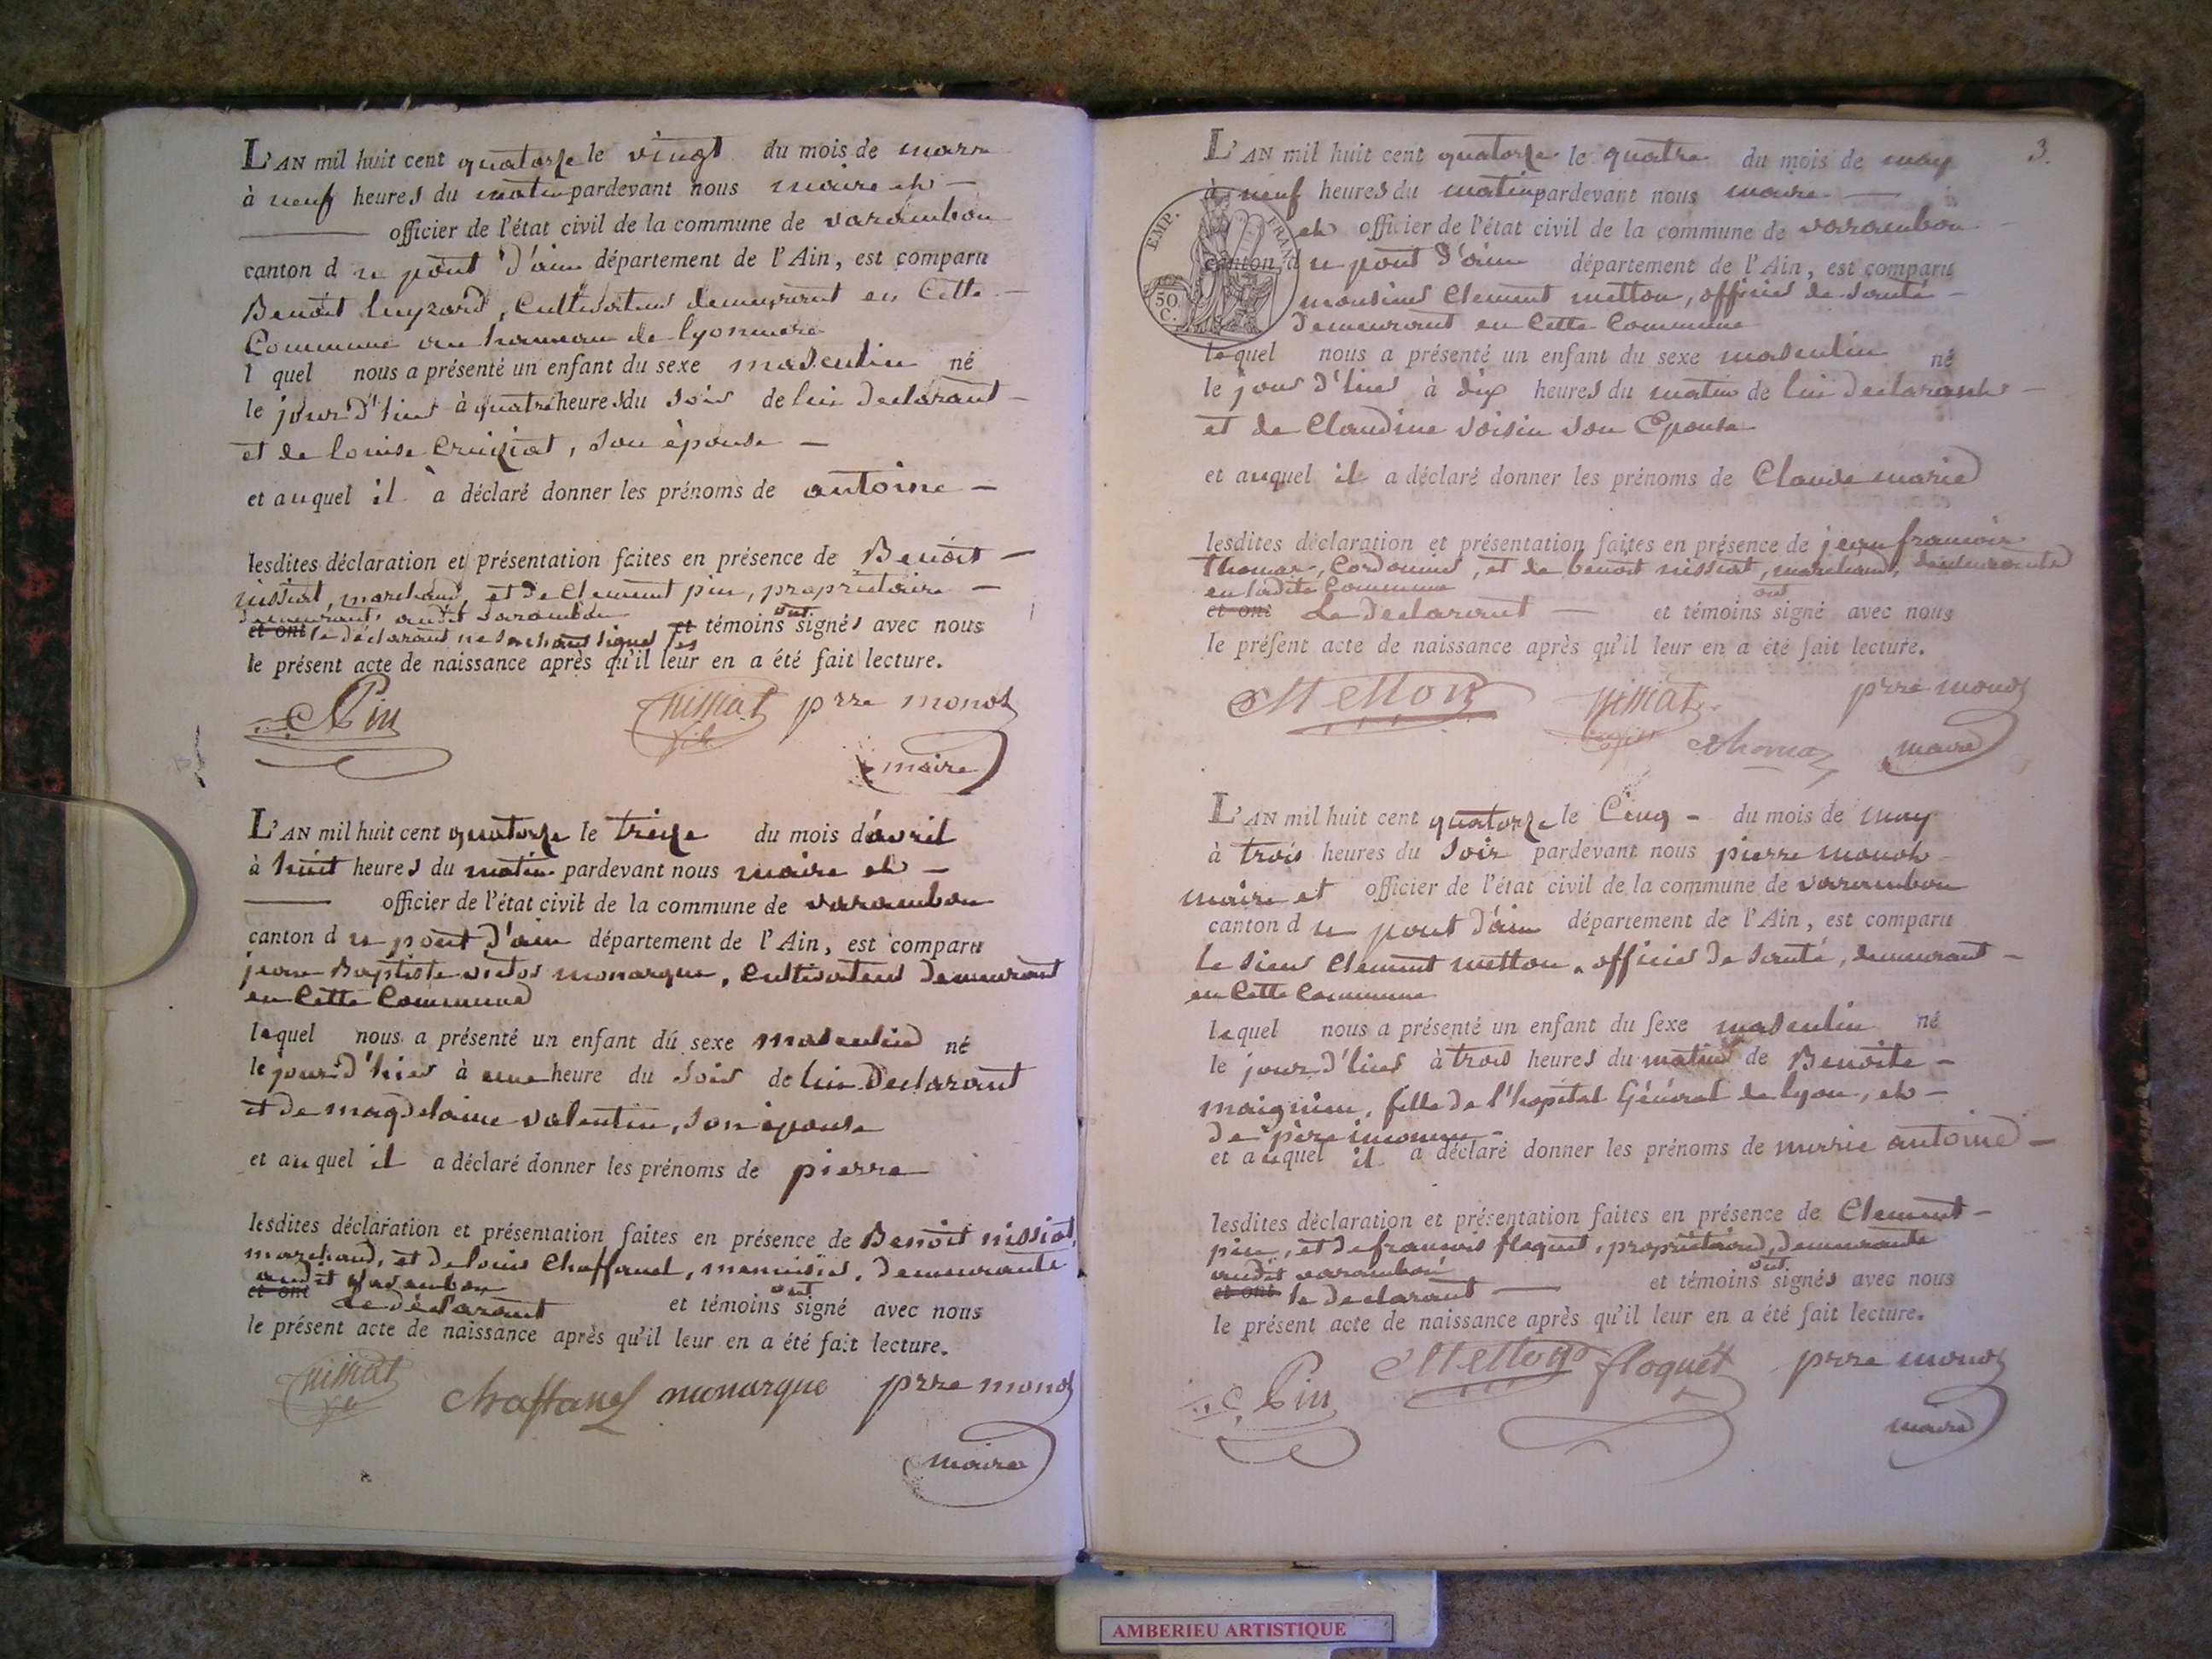 L'AN mil huit cent quatorze le vingt du mois de mars
à neuf heures du matin pardevant nous maire et
officier de l'état civil de la commune de varambon
canton d u pont d'ain département de l'Ain, est comparu
Benoit luyzard, Cultivateur demeurant en Cette
Commune au hameau de lyonniere
l quel nous a présenté un enfant du sexe masculin né
le jour d'hier à quatre heures du soir de lui declarant
et de louise Cruiziat, son épouse
et auquel il a déclaré donner les prénoms de antoine
lesdites déclaration et présentation faites en présence de Benoit
nissiat, marchand, et de Clement pin, propriétaire
demeurant audit varambon
et ont le déclarant ne sachant signer les et témoins ont signés avec nous
le présent acte de naissance après qu'il leur en a été fait lecture.
C Pin nissiat fils prre monot
maire
L'AN mil huit cent quatorze le treize du mois d'avril
à huit heures du matin pardevant nous maire et
officier de l'état civil de la commune de varambon
canton d u pont d'ain département de l'Ain, est comparu
jean Baptiste victor monarque, Cultivateur demeurant
en Cette Commune
lequel nous a présenté un enfant du sexe masculin né
le jour d'hier à une heure du soir de lui Declarant
et de magdelaine valentin, son épouse
et auquel il a déclaré donner les prénoms de pierre
lesdites déclaration et présentation faites en présence de Benoit nissiat,
marchand, et de louis Chaffanel, menuisier, demeurants
audit varambon
et ont le déclarant et témoins ont signé avec nous
le présent acte de naissance après qu'il leur en a été fait lecture.
nissiat fils chaffanel monarque prre monot
maire
3.
L'AN mil huit cent quatorze le quatre du mois de may
à neuf heures du matin pardevant nous maire
et officier de l'état civil de la commune de varambon
canton d u pont d'ain département de l'Ain, est comparu
EMP. FRAN.
50. C.
monsieur Clement metton, officier de santé
demeurant en Cette Commune
lequel nous a présenté un enfant du sexe masculin né
le jour d'hier à dix heures du matin de lui declarant
et de Claudine voisin son Epouse
et auquel il a déclaré donner les prénoms de Claude marie
lesdites déclaration et présentation faites en présence de jean francois
Thomas, Cordonnier, et de benoit nissiat, marchand, demeurants
en ladite Commune
et ont Le Declarant et témoins ont signé avec nous
le présent acte de naissance après qu'il leur en a été fait lecture.
Metton nissiat fils prre monot
thomas maire
L'AN mil huit cent quatorze le Cinq du mois de may
à trois heures du soir pardevant nous pierre monot
maire et officier de l'état civil de la commune de varambon
canton d u pont d'ain département de l'Ain, est comparu
Le sieur Clement metton, officier de santé, demeurant
en Cette Commune
lequel nous a présenté un enfant du sexe masculin né
le jour d'hier à trois heures du matin de Benoite
maignien, fille de l'hopital Général de lyon, et
de père inconnu
et auquel il a déclaré donner les prénoms de marie antoine
lesdites déclaration et présentation faites en présence de Clement
pin, et de francois floquet, propriétaires, demeurants
audit varambon
et ont le declarant et témoins ont signés avec nous
le présent acte de naissance après qu'il leur en a été fait lecture.
C. Pin Metton floquet prre monot
maire
AMBERIEU ARTISTIQUE